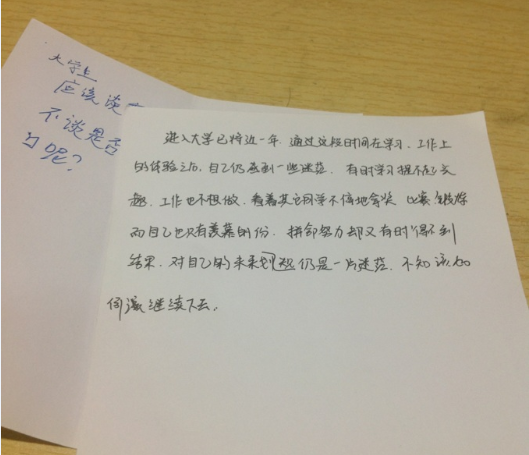 大学上
应该谈
不谈是否
呢?
进入大学已将近一年,通过这段时间在学习、工作上
的体验之后,自己仍感到一些迷茫。有时学习提不起兴
趣,工作也不想做,看着其它同学不停地拿奖,比赛
而自己也只有羡慕的份,拼命努力却又有时得不到
结果,对自己的未来规划仍是一片迷茫,不知该如
何继续下去。